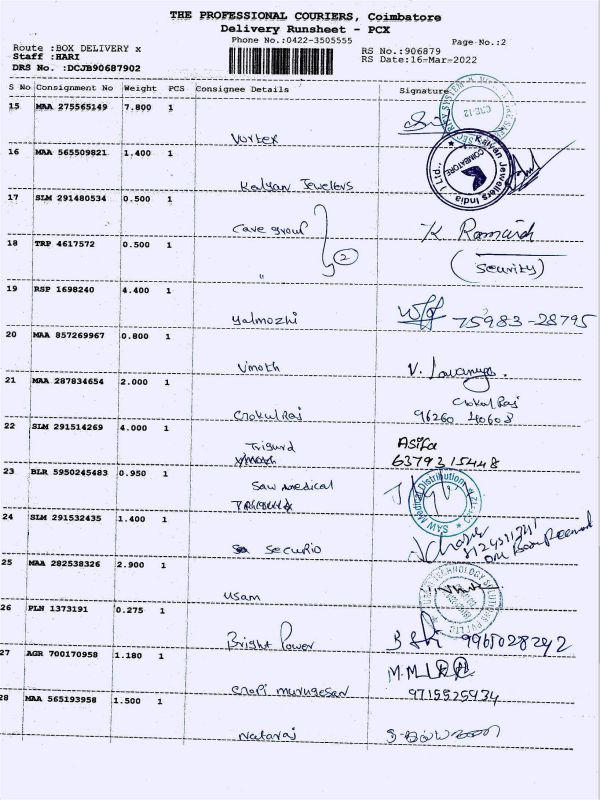 THE PROFESSIONAL COURIERS, Coimbatore
Delivery Runsheet - PCX
Phone No.:0422-3505555
Page No.:2
Route :BOX DELIVERY x
RS No.:906879
Staff :HARI
RS Date:16-Mar-2022
DRS No. :DCJB90687902
S No Consignment No Weight PCS Consignee Details Signature
15 MAA 275565149 7.800 1
Vortex
16 MAA 565509821 1.400 1
Kalyan Jewellers India Ltd.,
COIMBATORE
Kalyan Jewelers
17 SLM 291480534 0.500 1
Cave group
K Ramaish
2
18 TRP 4617572 0.500 1
(Security)
"
19 RSP 1698240 4.400 1
Yalmozhi
75983-28795
20 MAA 857269967 0.800 1
Vinoth
V. Lavanya.
21 MAA 287834654 2.000 1
Gokul Raj
Gokul Raj
96260 40608
22 SLM 291514269 4.000 1
Asifa
6379315448
23 BLR 5950245483 0.950 1
Saw medical
SAW Medical Distribution
24 SLM 291532435 1.400 1
Securio
25 MAA 282538326 2.900 1
Usam
26 PLN 1373191 0.275 1
Bright Power
9965028292
27 AGR 700170958 1.180 1
M.M
Gopi murugesan
9715525934
28 MAA 565193958 1.500 1
Nataraj